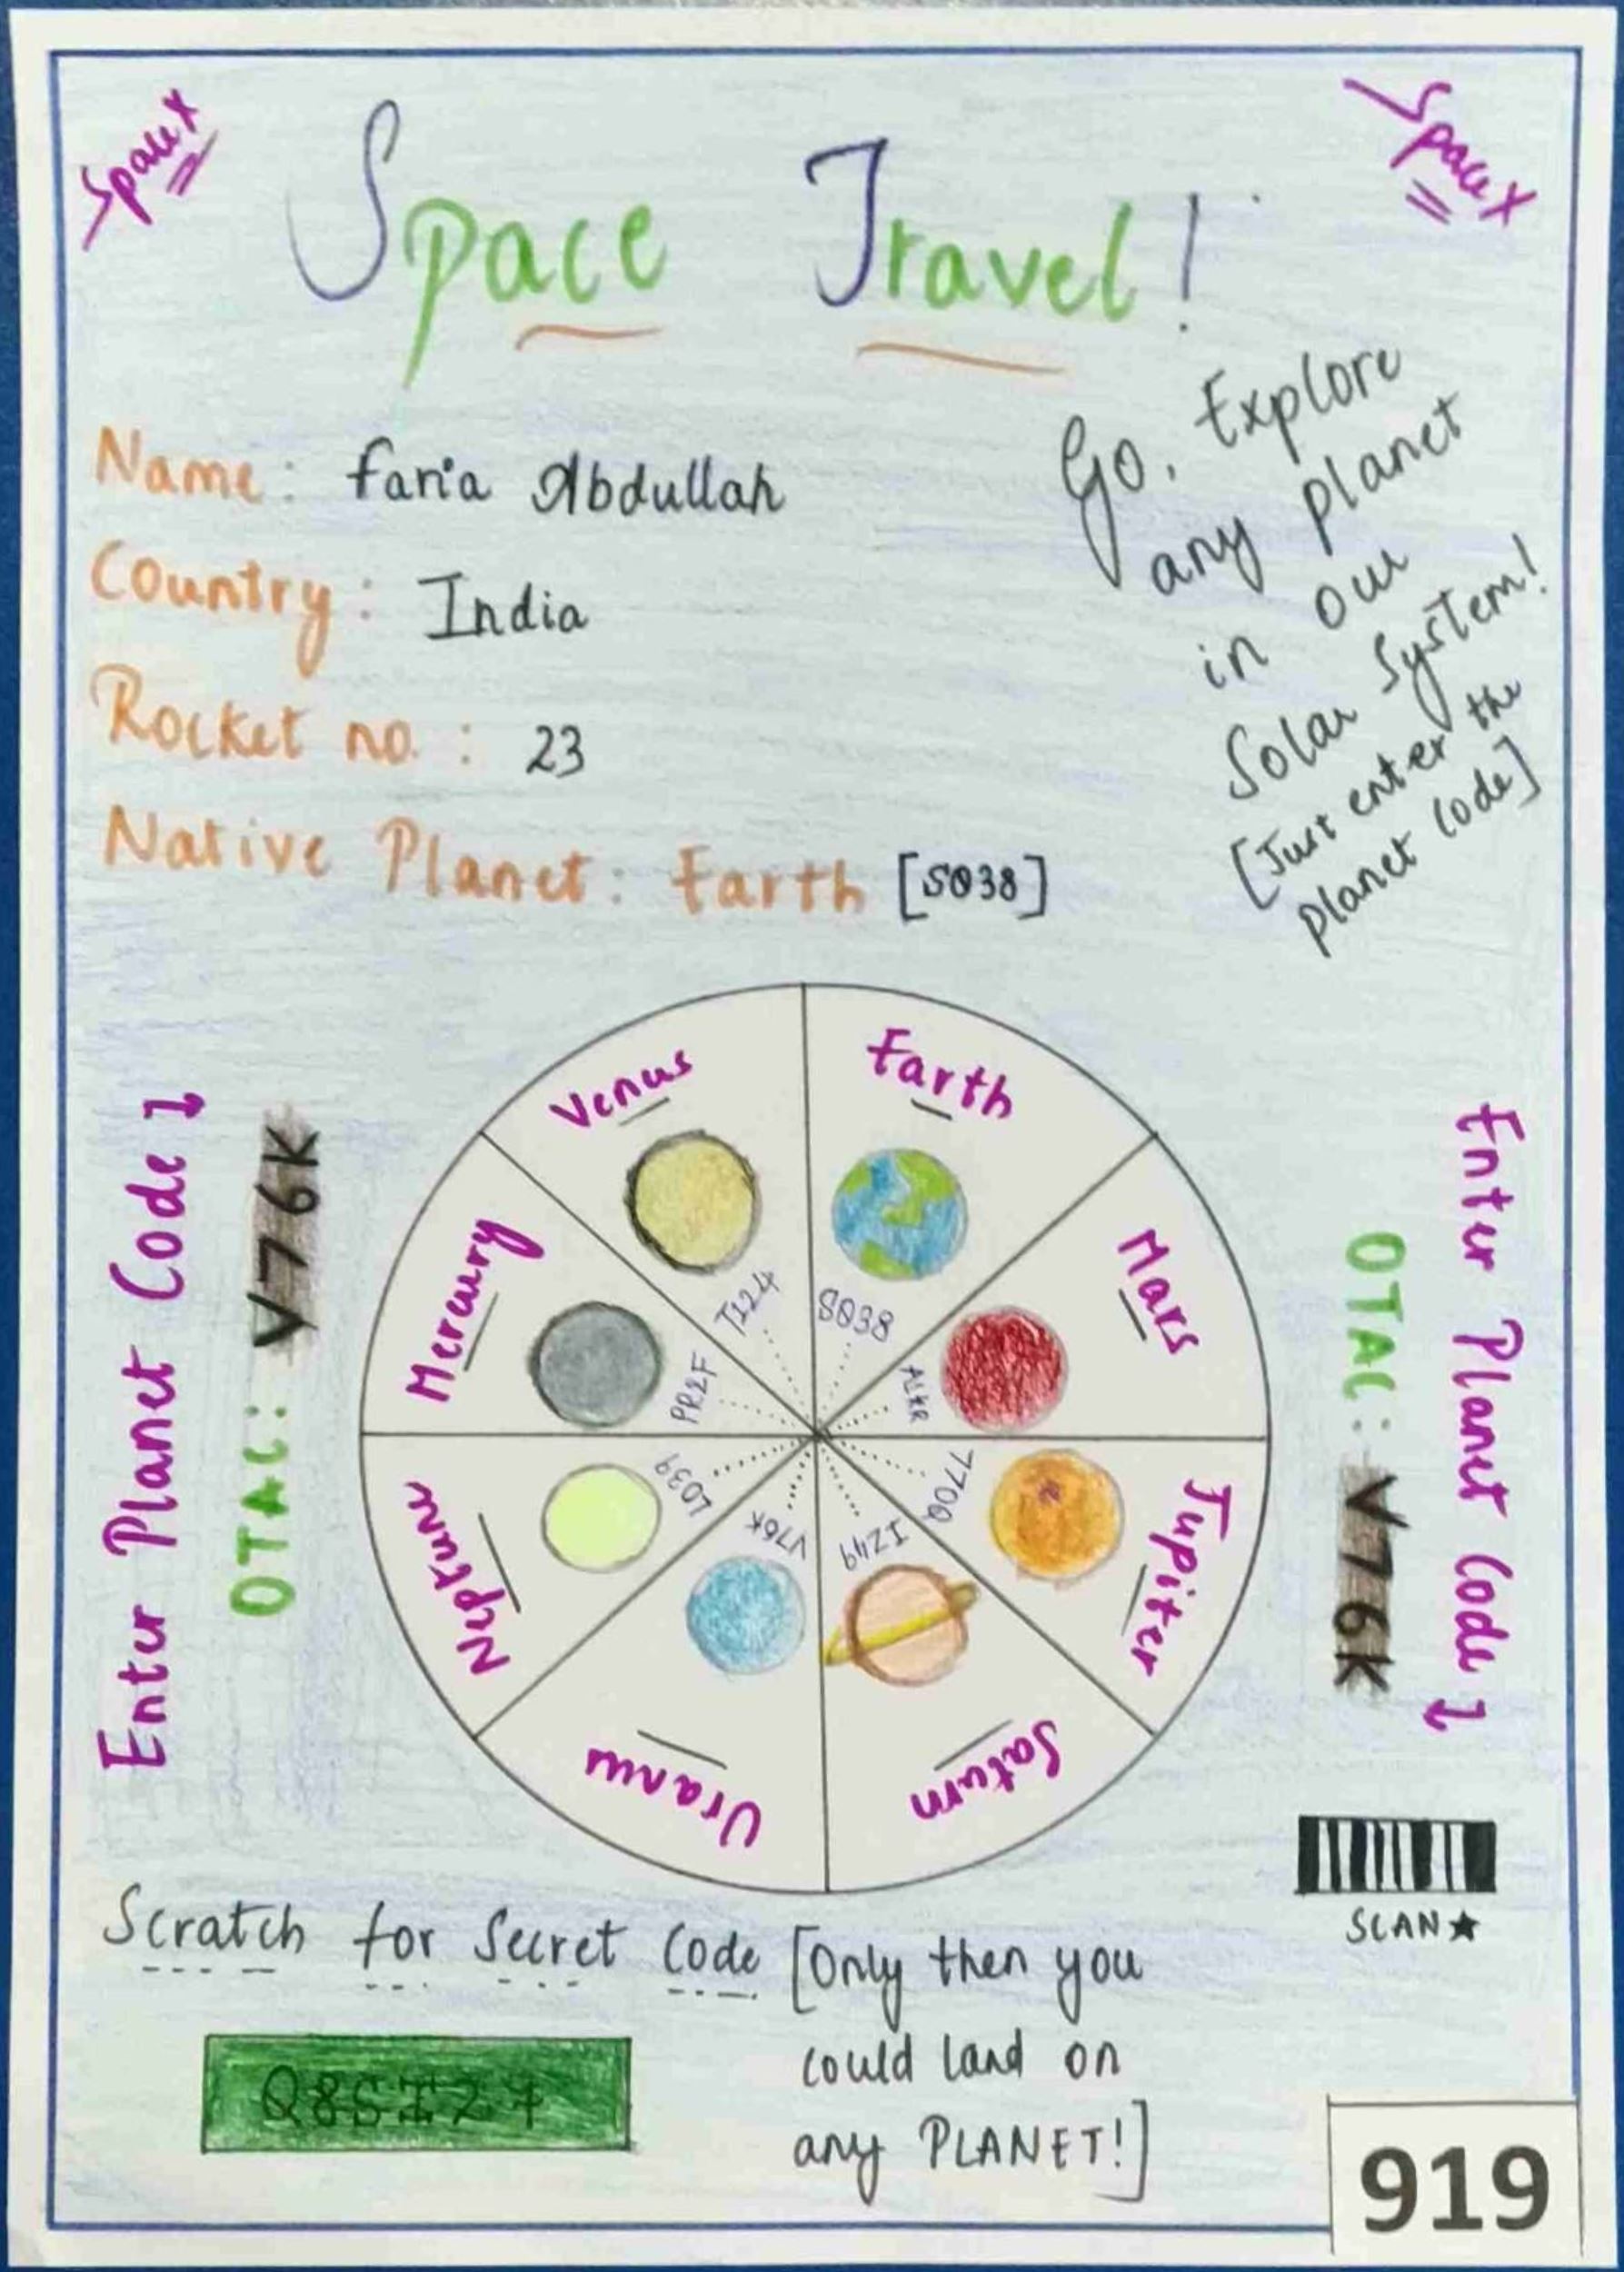 SpaceX
SpaceX
Space Travel!
Name: Faria Abdullah
Country: India
Rocket no.: 23
Native Planet: Earth [S038]
Go, Explore
any planet
in our
Solar System!
[Just enter the
planet code]
Enter Planet Code
OTAC: V76K
Venus
T124
Earth
S038
Mars
Mercury
PR2F
Jupiter
770Q
Saturn
IZ49
Uranus
V76K
Neptune
L039
Enter Planet Code
OTAC: V76K
SCAN
Scratch for Secret Code [Only then you
could land on
any PLANET!]
919